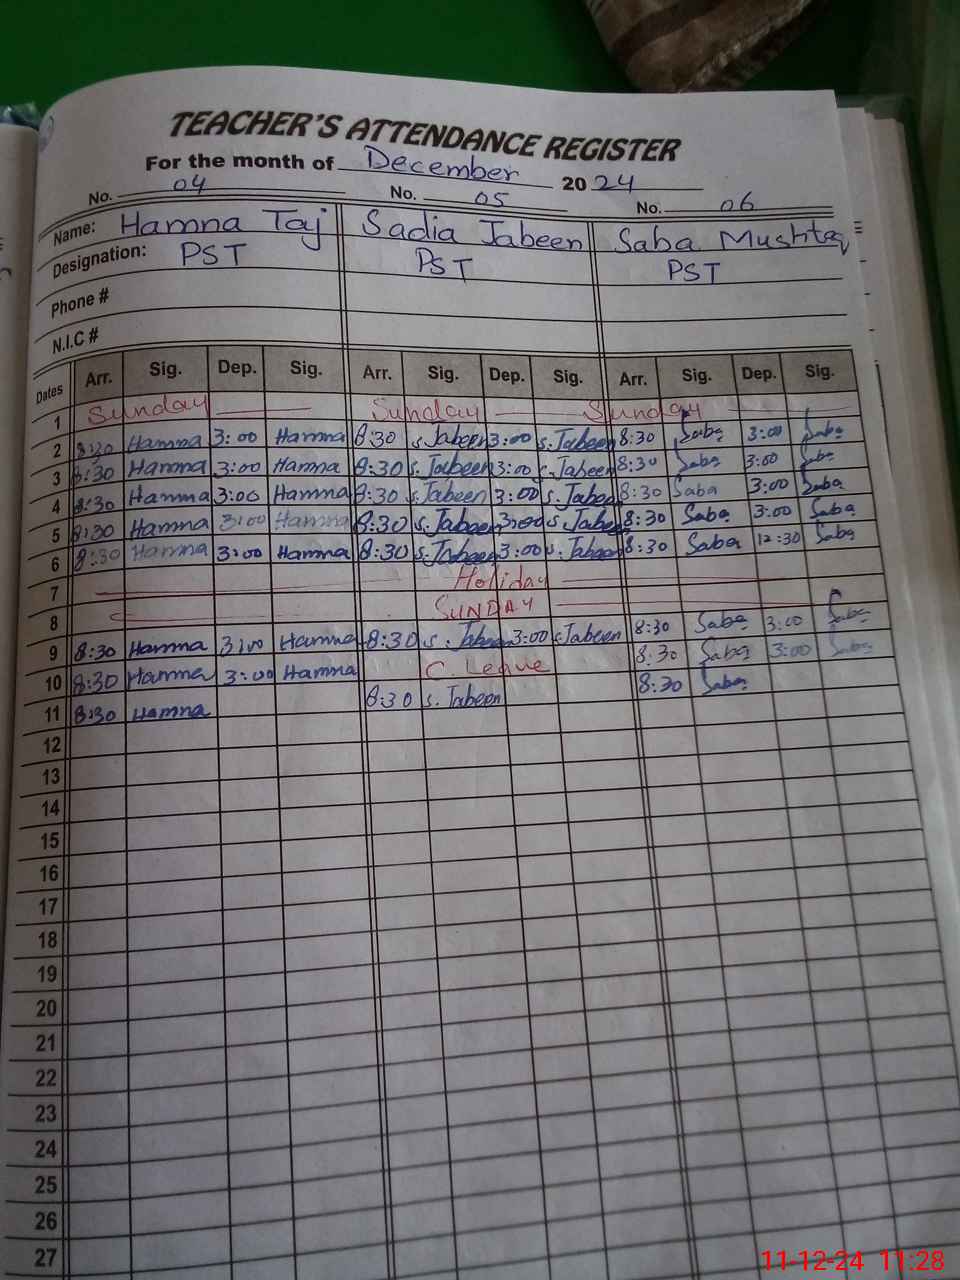 TEACHER'S ATTENDANCE REGISTER
For the month of December 2024
No. 04 No. 05 No. 06
Name: Hamna Taj Sadia Jabeen Saba Mushtaq
Designation: PST PST PST
Phone #
N.I.C #
Dates Arr. Sig. Dep. Sig. Arr. Sig. Dep. Sig. Arr. Sig. Dep. Sig.
1 Sunday Sunday Sunday
2 8:30 Hamna 3:00 Hamna 8:30 S. Jabeen 3:00 S. Jabeen 8:30 Saba 3:00 Saba
3 8:30 Hamna 3:00 Hamna 8:30 S. Jabeen 3:00 S. Jabeen 8:30 Saba 3:00 Saba
4 8:30 Hamna 3:00 Hamna 8:30 S. Jabeen 3:00 S. Jabeen 8:30 Saba 3:00 Saba
5 8:30 Hamna 3:00 Hamna 8:30 S. Jabeen 3:00 S. Jabeen 8:30 Saba 3:00 Saba
6 8:30 Hamna 3:00 Hamna 8:30 S. Jabeen 3:00 S. Jabeen 8:30 Saba 12:30 Saba
7 Holiday
8 SUNDAY
9 8:30 Hamna 3:00 Hamna 8:30 S. Jabeen 3:00 S. Jabeen 8:30 Saba 3:00 Saba
10 8:30 Hamna 3:00 Hamna C. Leave 8:30 Saba 3:00 Saba
11 8:30 Hamna 8:30 S. Jabeen 8:30 Saba
12
13
14
15
16
17
18
19
20
21
22
23
24
25
26
27
11-12-24 11:28